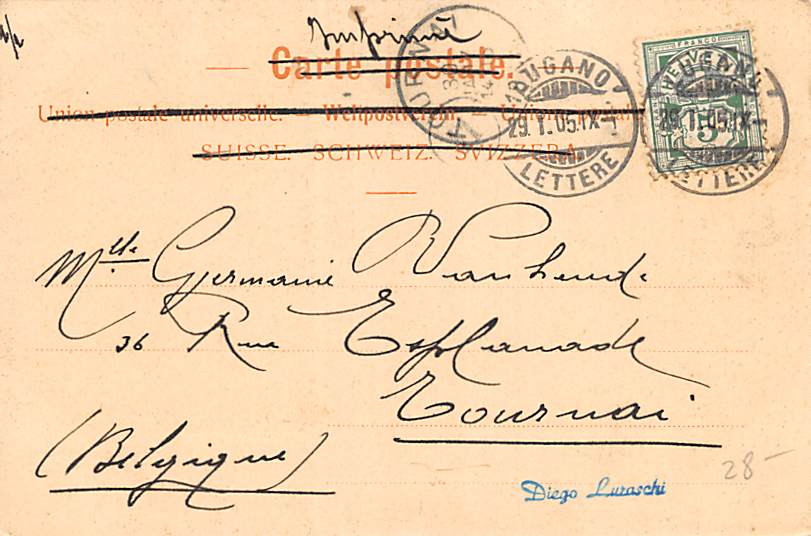 Imprimé
Carte postale.
Union postale universelle. — Weltpostverein. — Unione postale
SUISSE. SCHWEIZ. SVIZZERA
TOURNAI
LUGANO
29.I.05.IX
LETTERE
FRANCO
HELVETIA
5
LUGANO
29.I.05.IX
LETTERE
Mlle Germaine Vanhende
36 Rue Esplanade
Tournai
(Belgique)
Diego Luraschi
28-